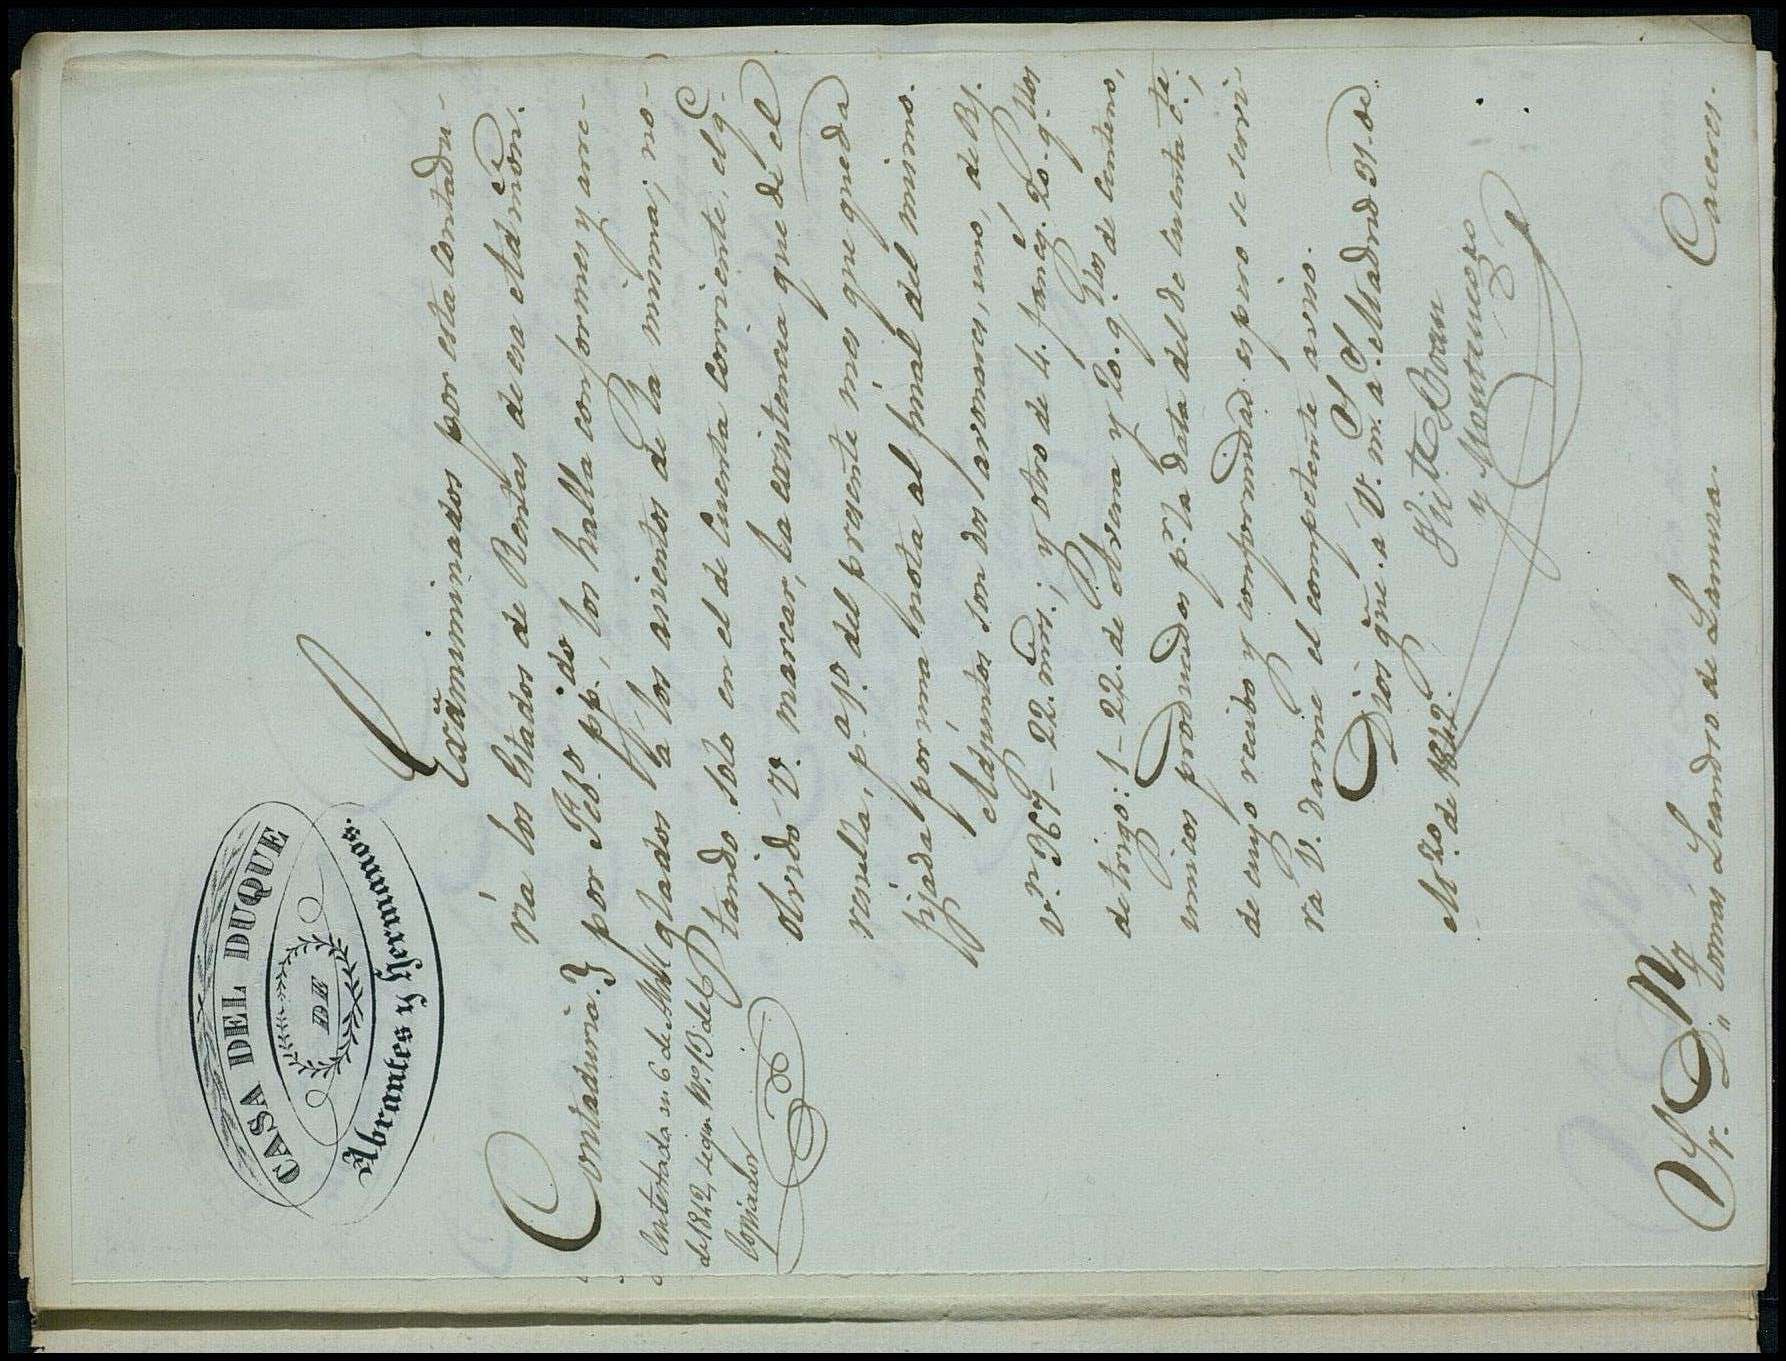 CASA DEL DUQUE
DE
Abrantes y Hermanos.
Contaduria.
Contestada en 6 de Abril
de 1842, segun Nº. 13 del
Copiador
Examiminados por esta Contadu-
ria los Estados de Rentas de esa Admón.
por Feb.º pp.do, los halla conformes y arre-
glados á los asientos de la misma; no-
tando solo en el de Cuenta corriente, el q.e
olvidó V. marcar, la existencia que de el
resulta, p.a 1º. del presente mes que queda
fijada por una nota al final del mismo.
Adjuntos son dos abonarés, uno, de Rs.
v.n 967-22. mrs.; y otro de 4. faneg.s 20. q.llos
de trigo: 1-22. de Avena y 20. q.llos de Centeno,
unicos producidos p.r la data del de Cuenta c.te;
de cuyo recibo y conformidad espero se servi-
rá V. darme el competente aviso.
Dios gue. a V. m.s a.s Madrid 31. de
Mrzo. de 1842.
y Montanero
Sr. Dn. Tomás Leandro de Lamura.
Caceres.